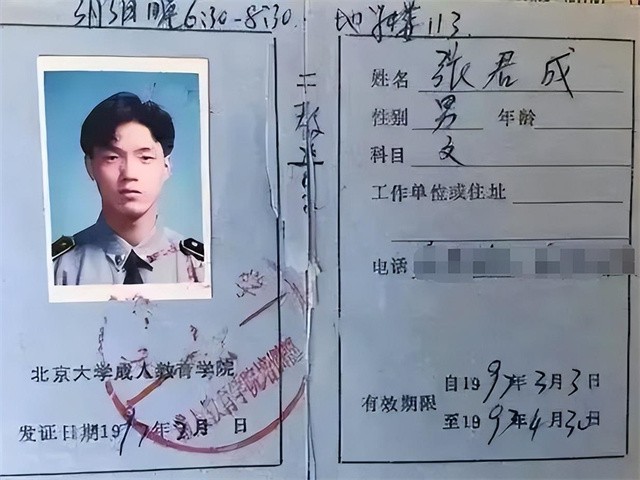 3月3日晚6:30-8:30.
北京大学成人教育学院
发证日期1997年3月 日
二教
地学楼113.
姓名 张君成
性别 男 年龄
科目 文
工作单位或住址
电话
有效期限
自1997年3月3日
至1997年4月30日